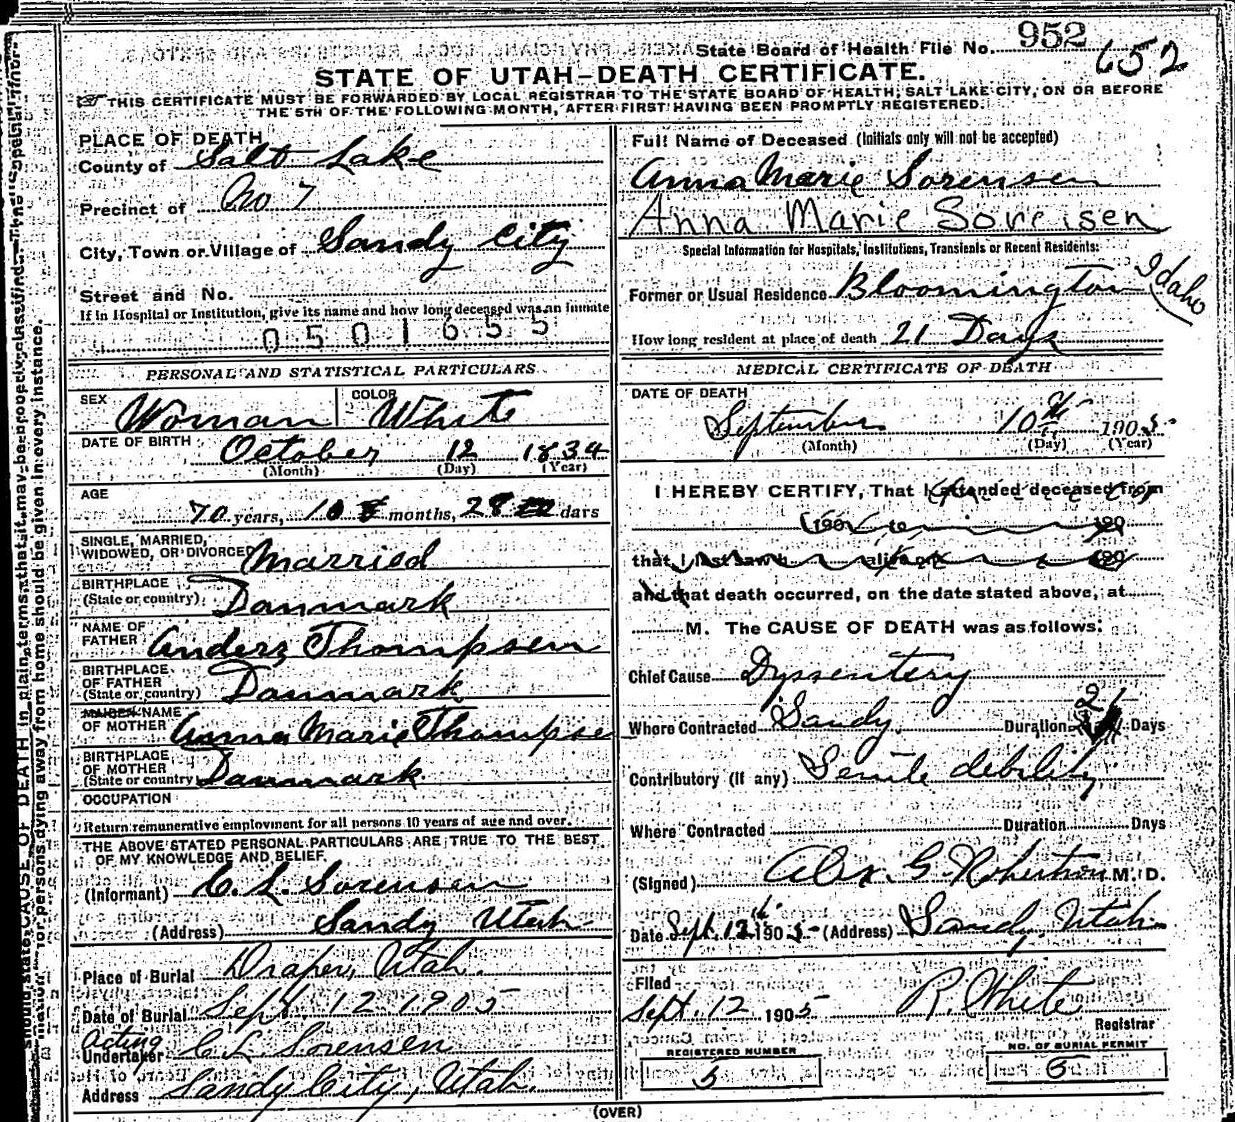 State Board of Health File No. 952
652
STATE OF UTAH-DEATH CERTIFICATE.
THIS CERTIFICATE MUST BE FORWARDED BY LOCAL REGISTRAR TO THE STATE BOARD OF HEALTH, SALT LAKE CITY, ON OR BEFORE
THE 5TH OF THE FOLLOWING MONTH, AFTER FIRST HAVING BEEN PROMPTLY REGISTERED.
PLACE OF DEATH
County of Salt Lake
Precinct of No 7
City, Town or Village of Sandy City
Street and No.
If in Hospital or Institution, give its name and how long deceased was an inmate
0501655
PERSONAL AND STATISTICAL PARTICULARS
SEX Woman COLOR White
DATE OF BIRTH October 12 1834
(Month) (Day) (Year)
AGE
70 years, 10 8 months, 28 days
SINGLE, MARRIED,
WIDOWED, OR DIVORCED Married
BIRTHPLACE
(State or country) Danmark
NAME OF
FATHER Anders Thompsen
BIRTHPLACE
OF FATHER
(State or country) Danmark
MAIDEN NAME
OF MOTHER Anna Marie Thompse
BIRTHPLACE
OF MOTHER
(State or country) Danmark.
OCCUPATION
Return remunerative employment for all persons 10 years of age and over.
THE ABOVE STATED PERSONAL PARTICULARS ARE TRUE TO THE BEST
OF MY KNOWLEDGE AND BELIEF.
(Informant) C. L. Sorensen
(Address) Sandy Utah
Place of Burial Draper, Utah.
Date of Burial Sept. 12 1905
Acting
Undertaker C. L. Sorensen
Address Sandy City, Utah.
Full Name of Deceased (Initials only will not be accepted)
Anna Marie Sorensen
Anna Marie Soreisen
Special Information for Hospitals, Institutions, Transients or Recent Residents:
Former or Usual Residence Bloomington Idaho
How long resident at place of death 21 Days
MEDICAL CERTIFICATE OF DEATH
DATE OF DEATH
September 10th 1905
(Month) (Day) (Year)
I HEREBY CERTIFY, That I attended deceased from
190 190
that I last saw h alive on 190
and that death occurred, on the date stated above, at
M. The CAUSE OF DEATH was as follows:
Chief Cause Dyssentery
Where Contracted Sandy Duration 21 Days
Contributory (If any) Senile debility
Where Contracted Duration Days
(Signed) Alex. G. Robertson M. D.
Date Sept. 12th 1905 (Address) Sandy, Utah
Filed
Sept. 12 1905 R. White
Registrar
REGISTERED NUMBER
5
NO. OF BURIAL PERMIT
5
(OVER)
should state CAUSE OF DEATH in plain terms that it may be properly classified. The "Special Infor-
mation" for persons dying away from home should be given in every instance.